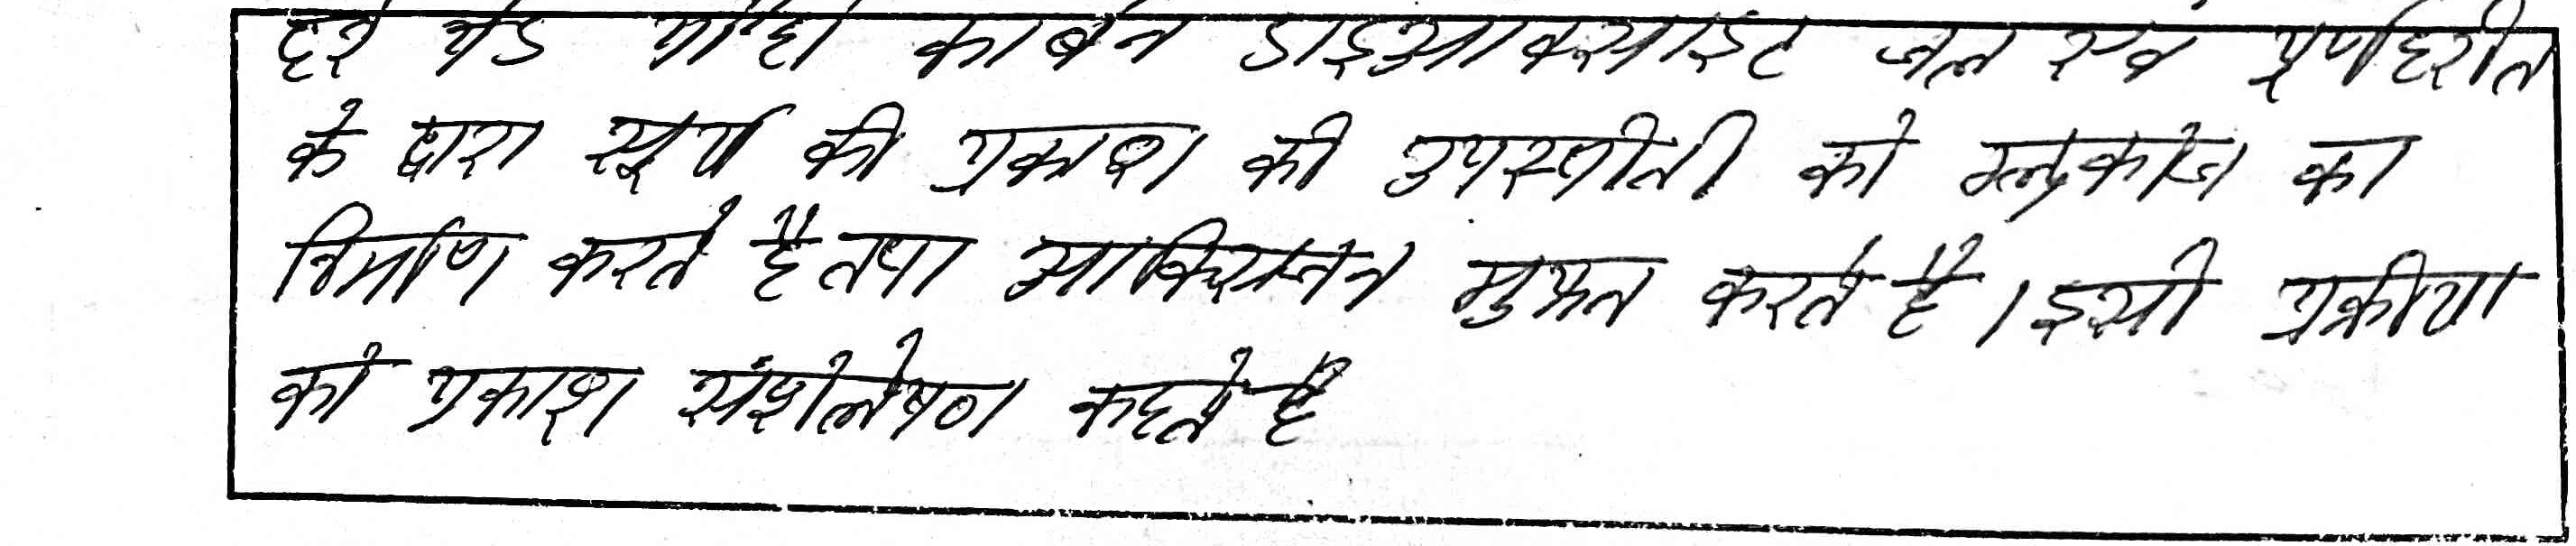 हरे पेड पौधे कार्बन डाइआक्साइट जल एवं प्रर्णहरीत
के द्वारा सूर्य की प्रकाश की उपस्थीती को ग्लूकोज का
निर्माण करते है तथा आक्सिजन मुक्त करते है । इसी प्रक्रीया
को प्रकाश संश्लेषण कहते है